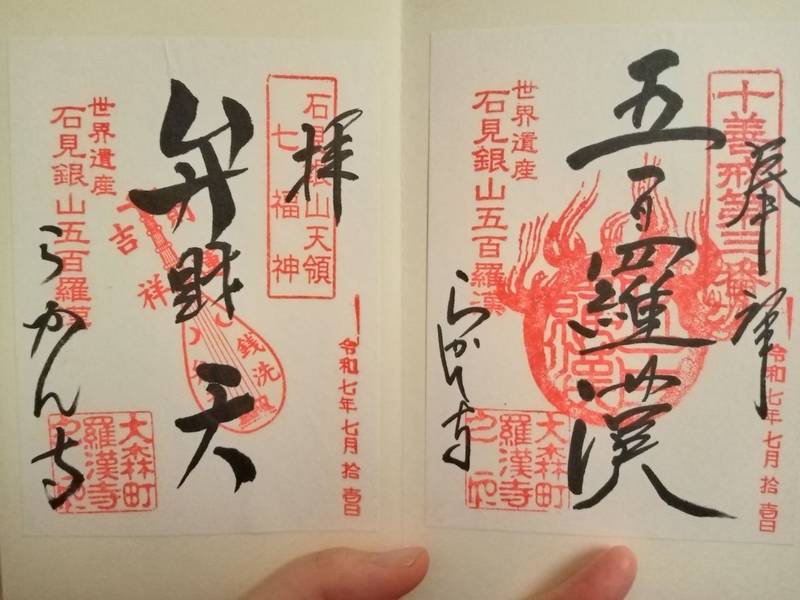 奉拝
令和七年七月拾壱日
五百羅漢
世界遺産
石見銀山五百羅漢
らかん寺
大森町
羅漢寺
之印
令和七年七月拾壱日
石見銀山天領
七福神
拝
弁財天
吉祥
銭洗
世界遺産
石見銀山五百羅漢
らかん寺
大森町
羅漢寺
之印